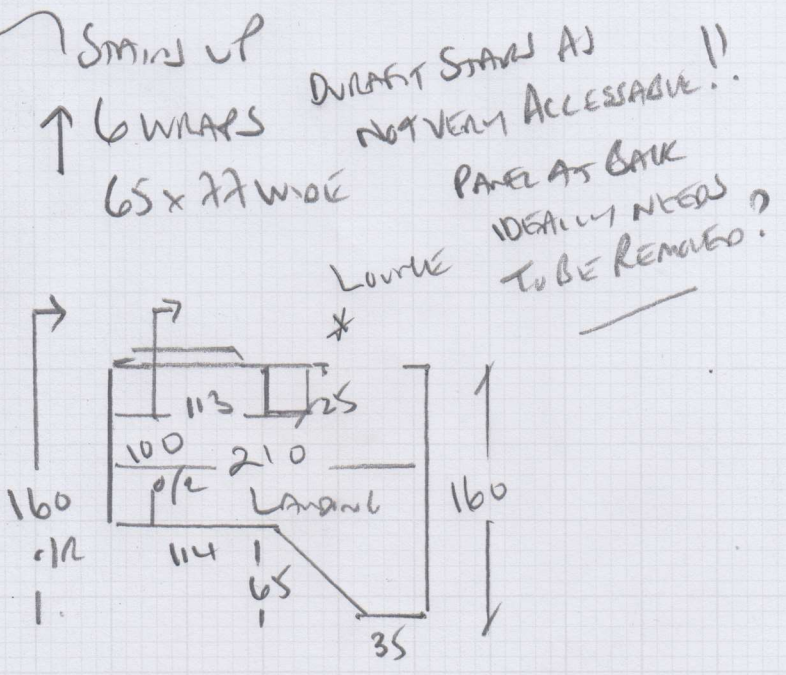 STAIRS UP
6 WRAPS
65 x 77 WIDE
DURAFIT STAIRS AS
NOT VERY ACCESSABLE!!
PANEL AT BACK
IDEALLY NEEDS
TO BE REMOVED?
LOUNGE
*
113
25
100
210
O/R
LANDING
160
O/R
160
114
65
35